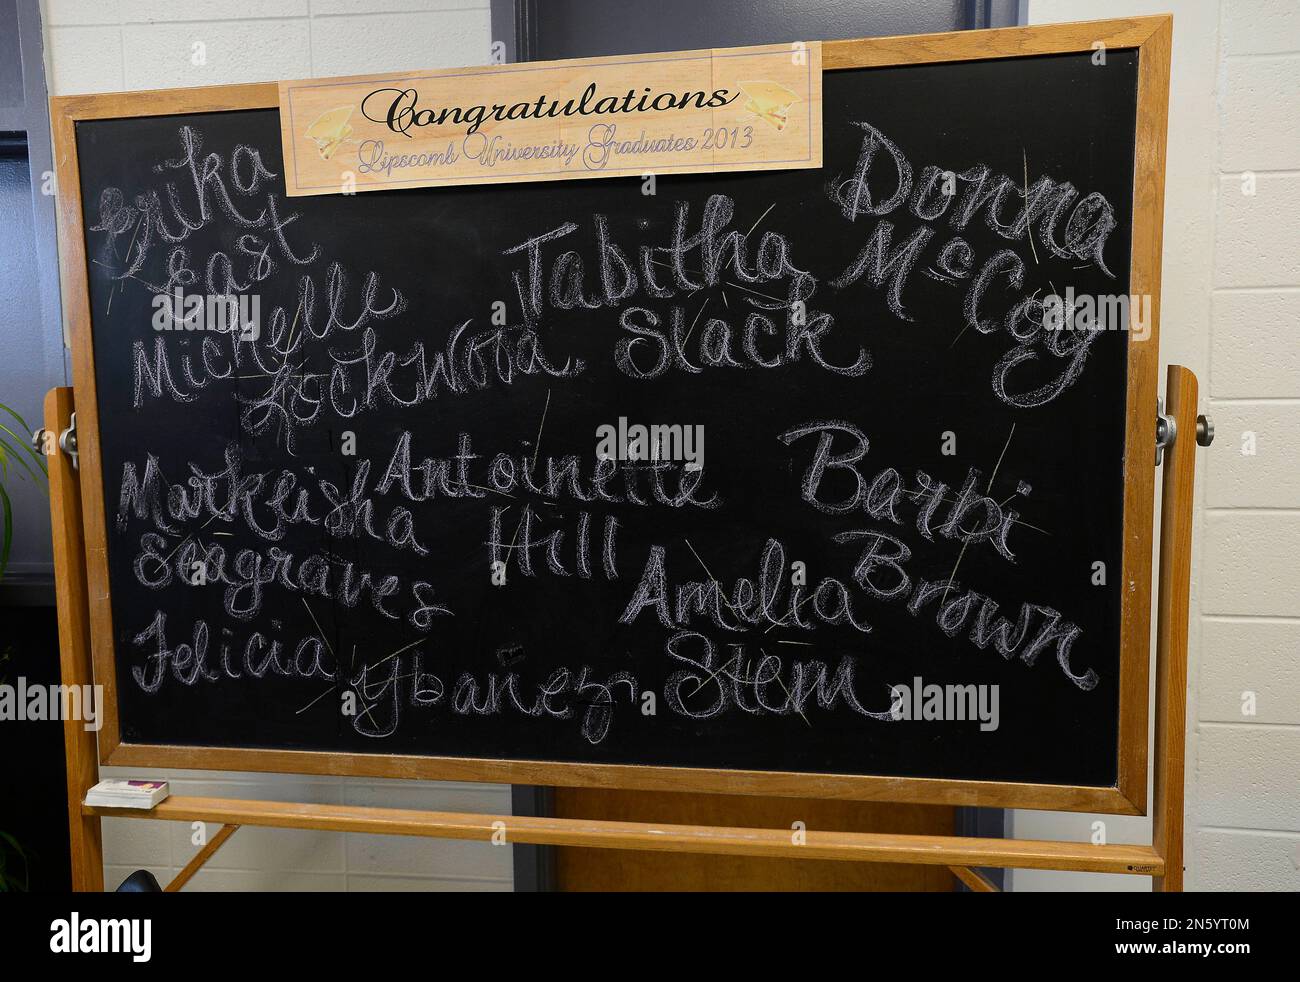 Congratulations
Lipscomb University Graduates 2013
Erika
East
Michelle
Lockwood
Tabitha
Slack
Donna
McCoy
Markeisha
Seagraves
Antoinette
Hill
Barbi
Brown
Felicia
Ybañez
Amelia
Stem
QUARTET
alamy
Image ID: 2N5YT0M
www.alamy.com